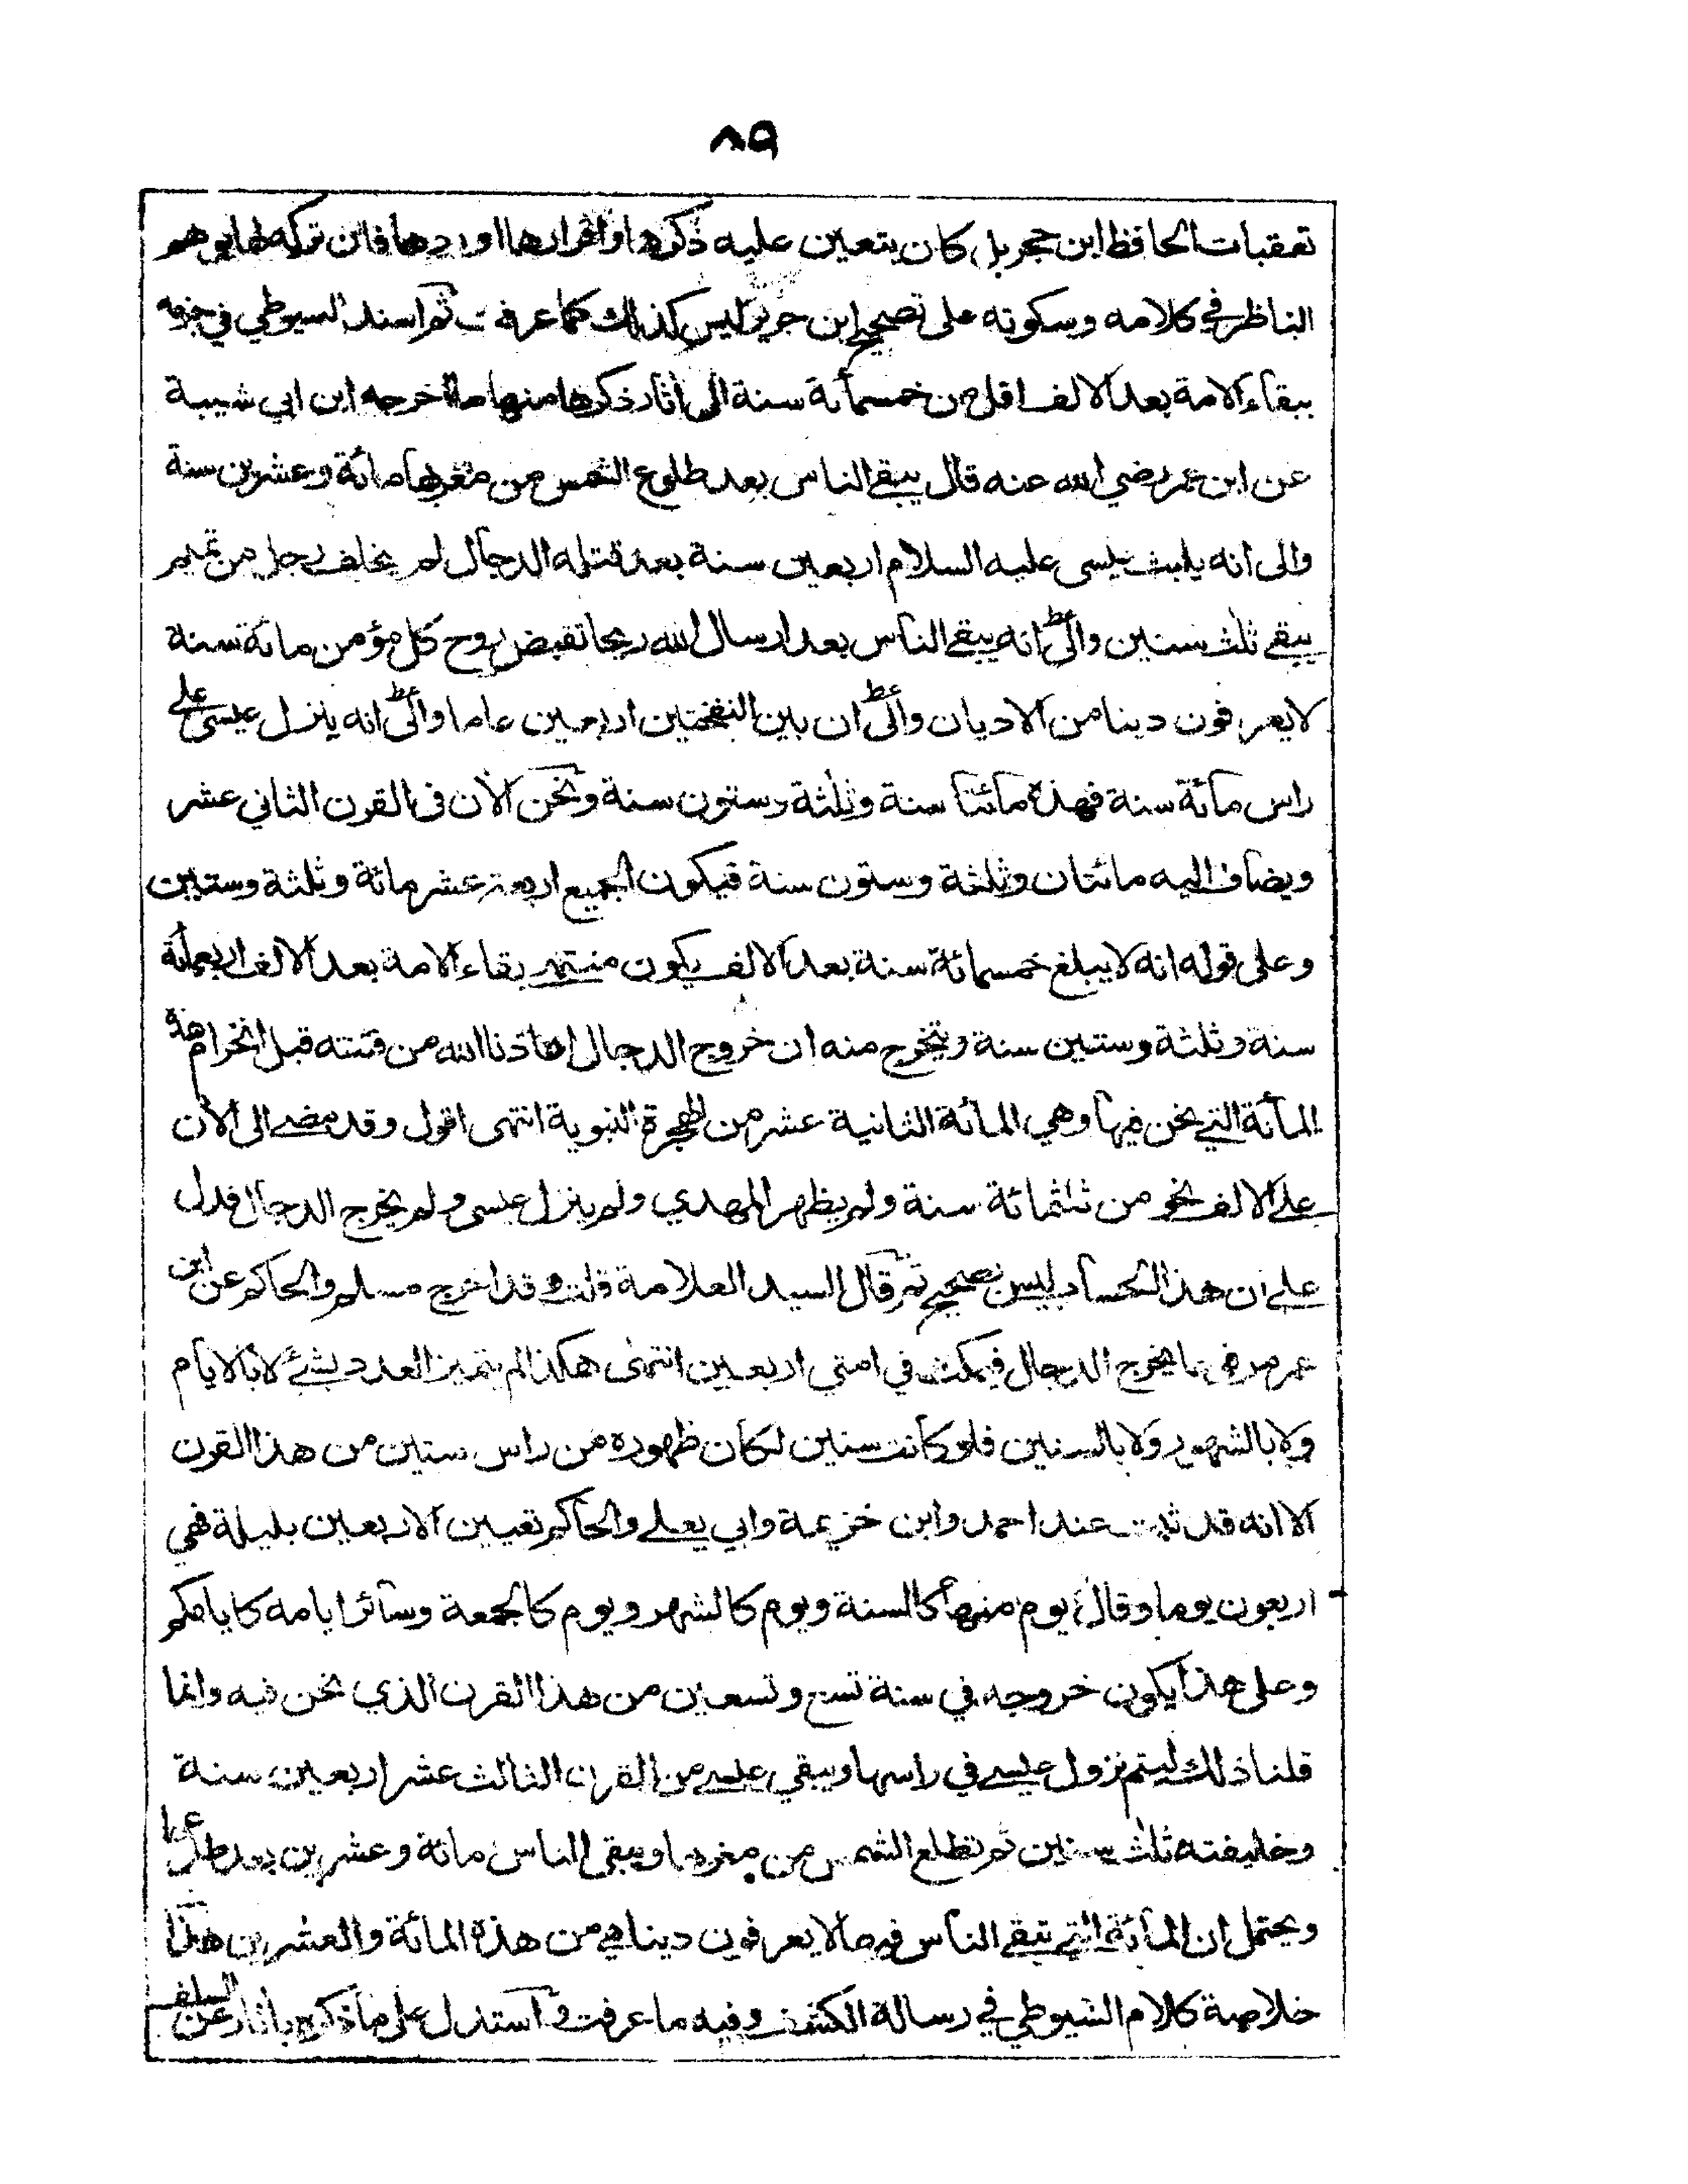 ٨٩
تعقبات الحافظ ابن حجر بل كان يتعين عليه ذكرها واقرارها او ردها فان تركه لها يوهم
الناظر في كلامه وسكوته على تصحيح ابن جرير ليس كذلك كما عرفت ثم اسند السيوطي في جزمه
ببقاء الامة بعد الالف اقل من خمسمأئة سنة الى اثار ذكرها منها ما اخرجه ابن ابي شيبة
عن ابن عمر رضي الله عنه قال يبقى الناس بعد طلوع الشمس من مغربها مائة وعشرين سنة
والى انه يلبث عيسى عليه السلام اربعين سنة بعد قتله الدجال ثم يخلف رجل من تميم
يبقى ثلث سنين والى انه يبقى الناس بعد ارسال الله ريحا تقبض روح كل مؤمن مائة سنة
لا يعرفون دينا من الاديان والى ان بين النفختين اربعين عاما والى انه ينزل عيسى على
راس مائة سنة فهذه مائتا سنة وثلثة وستون سنة ونحن الآن في القرن الثاني عشر
ويضاف اليه مائتان وثلثة وستون سنة فيكون الجميع اربعة عشر مائة وثلثة وستين
وعلى قوله انه لا يبلغ خمسمائة سنة بعد الالف يكون منتهى بقاء الامة بعد الالف اربعمائة
سنة وثلثة وستين سنة ويتخرج منه ان خروج الدجال اعاذنا الله من فتنته قبل انخرام هذه
المأئة التي نحن فيها وهي المأئة الثانية عشر من الهجرة النبوية انتهى اقول وقد مضى الى الآن
على الالف نحو من ثلثمائة سنة ولم يظهر المهدي ولم ينزل عيسى ولم يخرج الدجال فدل
على ان هذا الحساب ليس بصحيح ثم قال السيد العلامة قلت وقد اخرج مسلم والحاكم عن ابن
عمر يخرج الدجال فيمكث في امتي اربعين انتهى هكذا لم يتميز العدد بشئ لا بالايام
ولا بالشهور ولا بالسنين فلو كانت سنين لكان ظهوره من راس ستين من هذا القرن
الا انه قد ثبت عند احمد وابن خزيمة وابي يعلى والحاكم تعيين الاربعين بليلة فهي
اربعون يوما وقال يوم منها كالسنة ويوم كالشهر ويوم كالجمعة وسائر ايامه كايامكم
وعلى هذا يكون خروجه في سنة تسع وتسعين من هذا القرن الذي نحن فيه وانما
قلنا ذلك ليتم نزول عيسى في راسها ويبقى عيسى من القرن الثالث عشر اربعين سنة
وخليفته ثلث سنين ثم تطلع الشمس من مغربها ويبقى الناس مائة وعشرين بعد طلوعها
ويحتمل ان المأئة التي تبقى الناس فيها لا يعرفون دينا هي من هذه المائة والعشرين هذا
خلاصة كلام السيوطي في رسالة الكشف وفيه ما عرفت واستدل على ما ذكره بآثار عن السلف